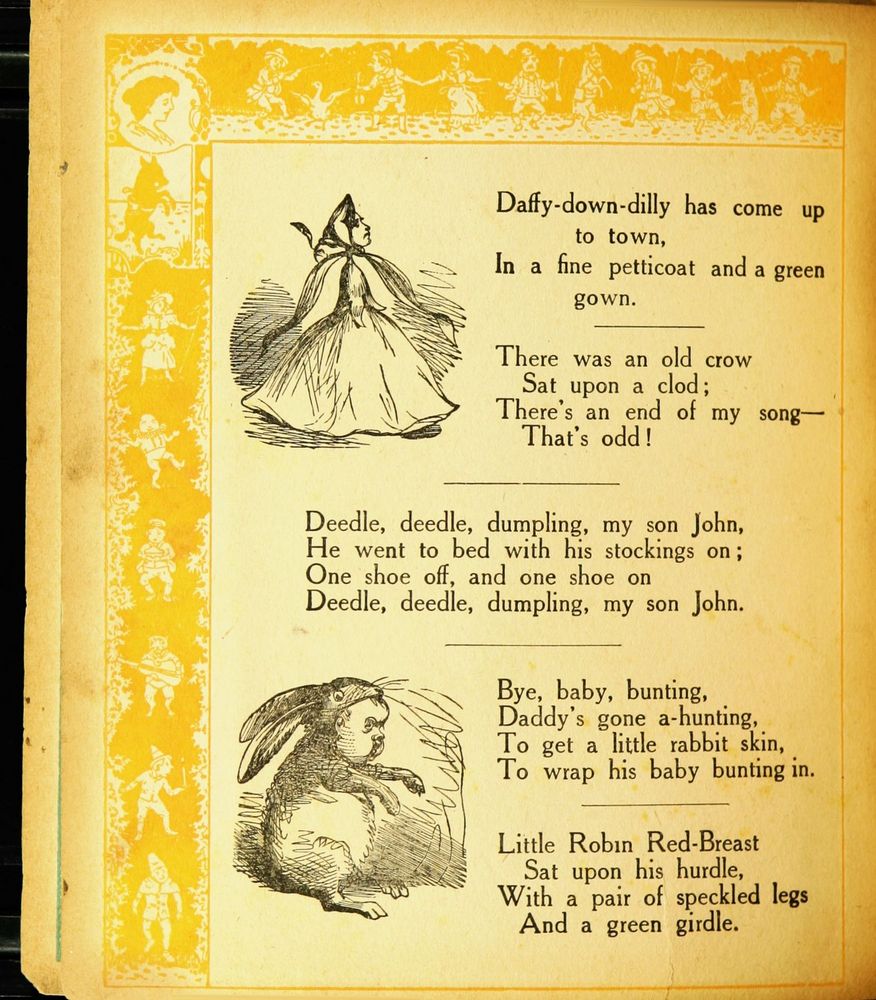 Daffy-down-dilly has come up
to town,
In a fine petticoat and a green
gown.
There was an old crow
Sat upon a clod;
There's an end of my song—
That's odd!
Deedle, deedle, dumpling, my son John,
He went to bed with his stockings on;
One shoe off, and one shoe on
Deedle, deedle, dumpling, my son John.
Bye, baby, bunting,
Daddy's gone a-hunting,
To get a little rabbit skin,
To wrap his baby bunting in.
Little Robin Red-Breast
Sat upon his hurdle,
With a pair of speckled legs
And a green girdle.